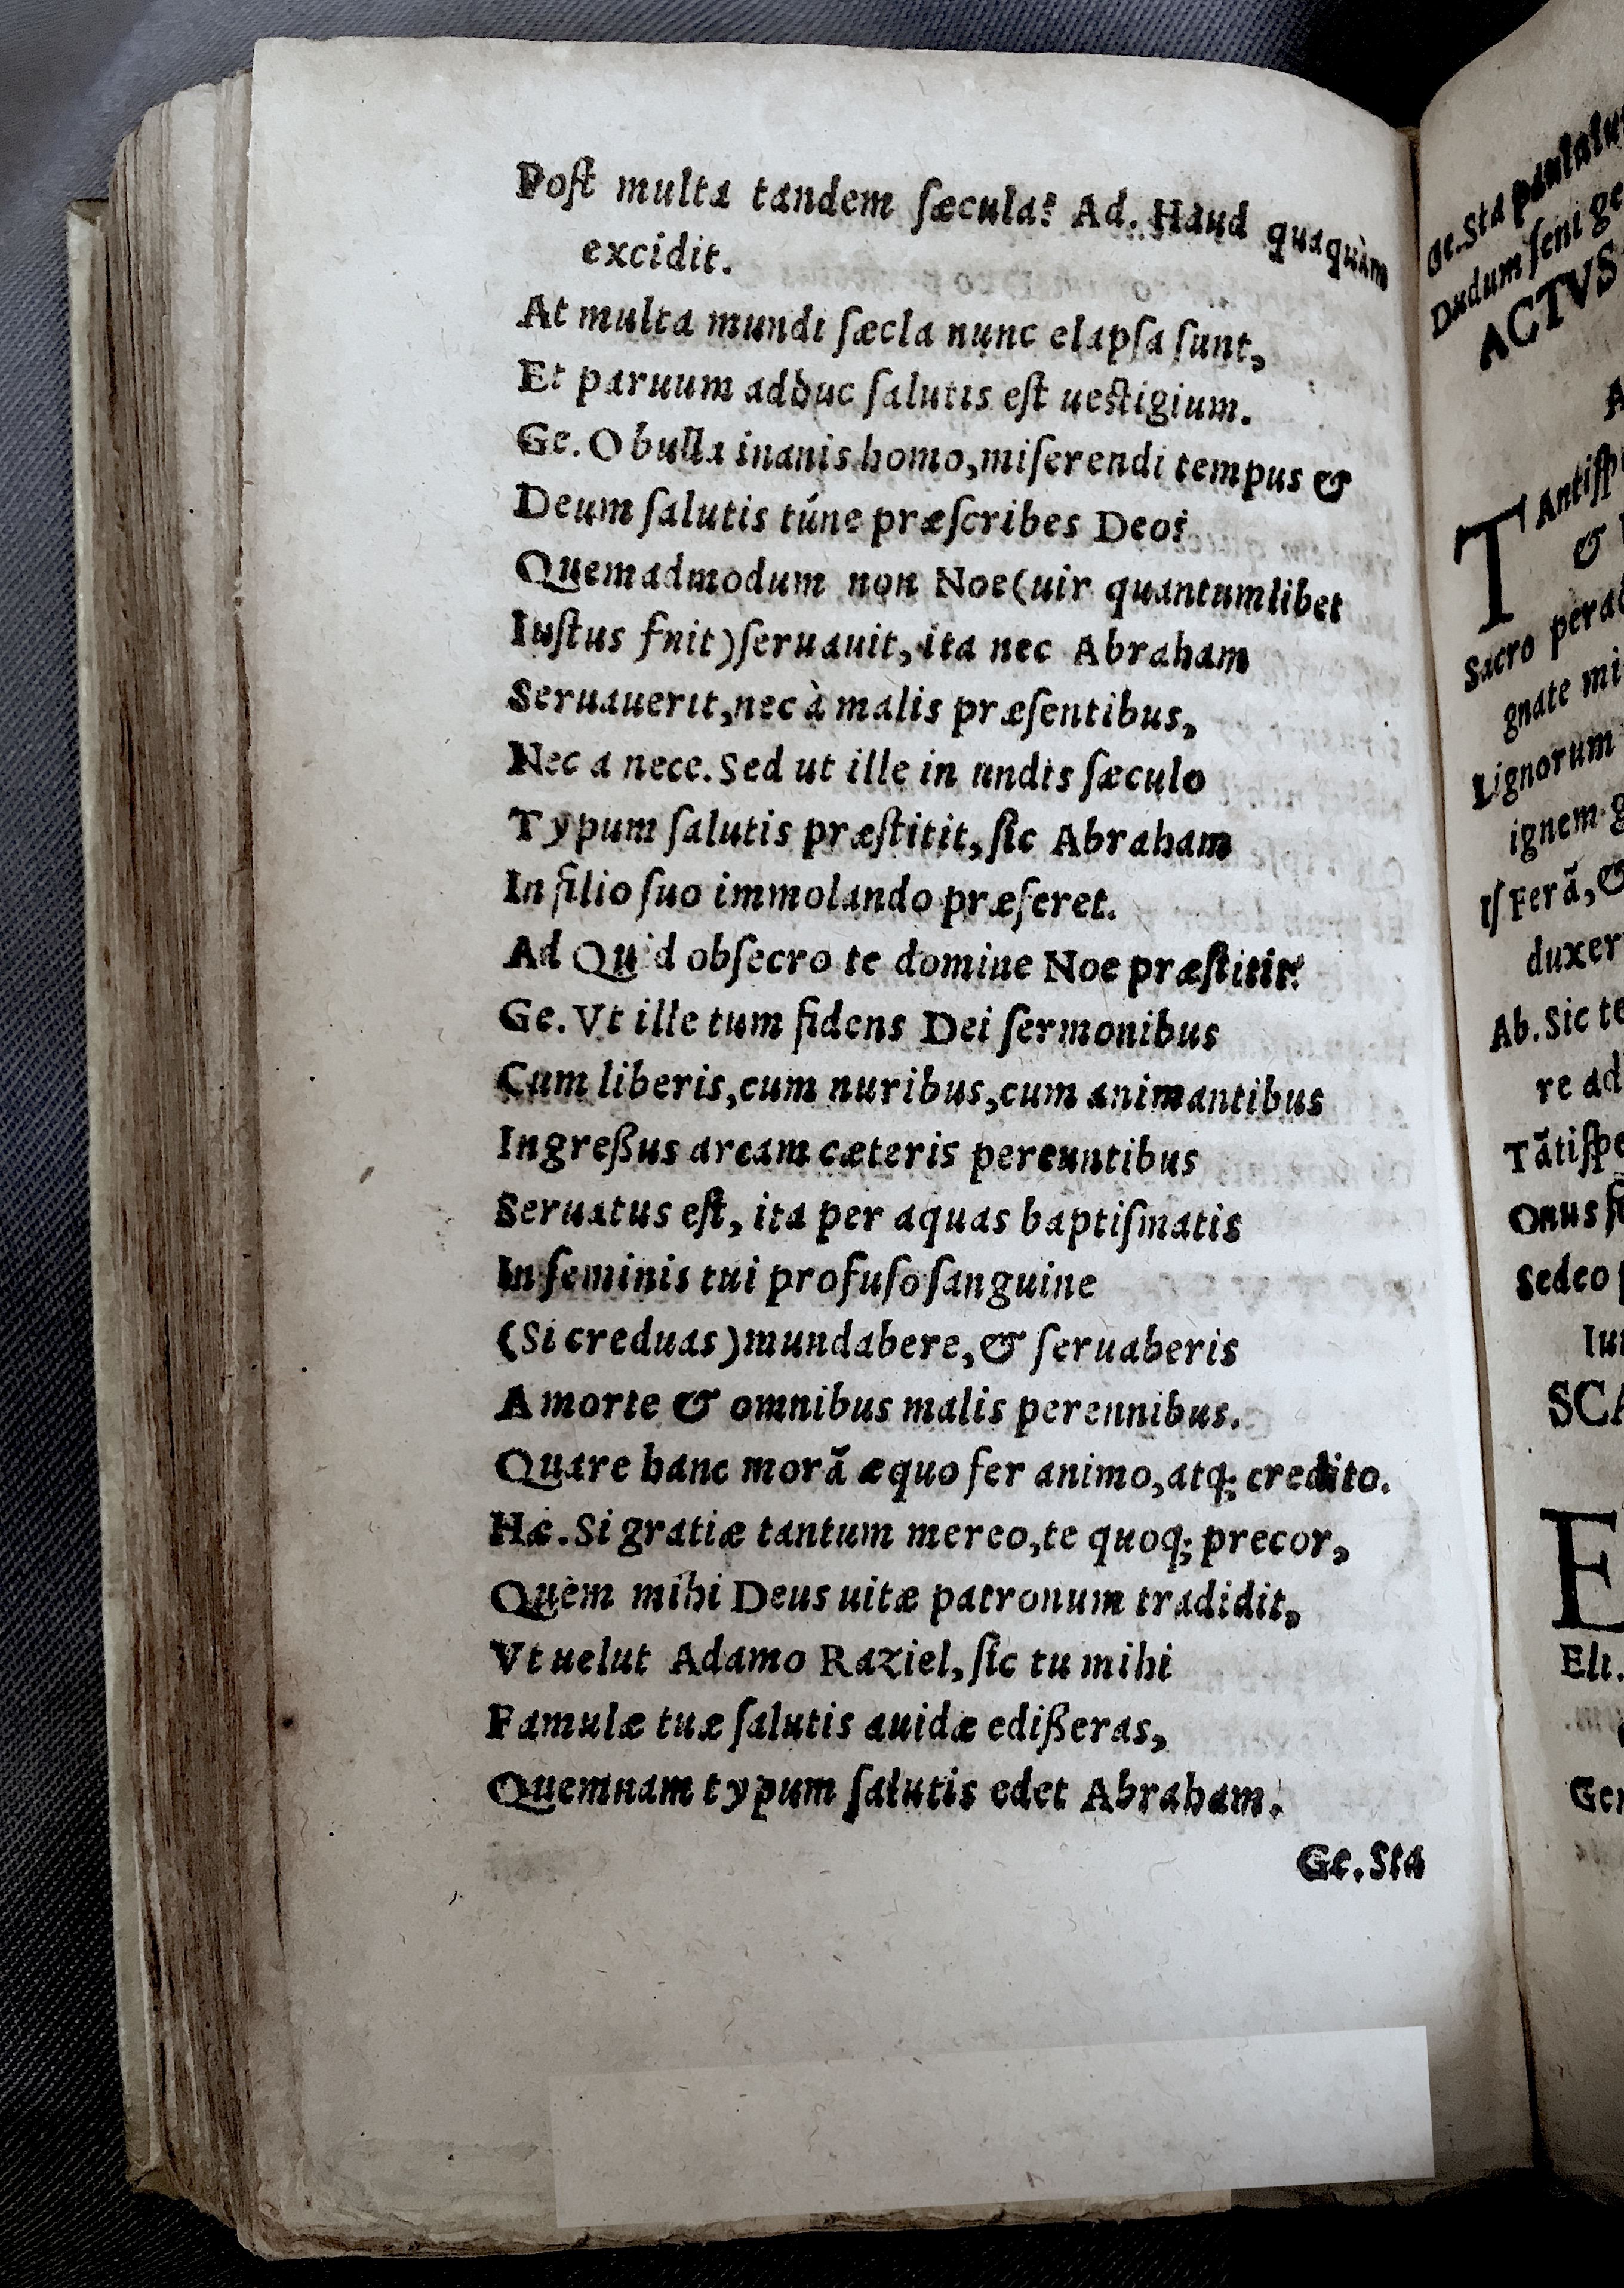 Poſt multa tandem ſæcula? Ad. Haud quaquàm
excidit.
At multa mundi ſæcla nunc elapſa ſunt,
Et paruum adhuc ſalutis eſt ueſtigium.
Ge. O bulla inanis homo, miſerendi tempus &
Deum ſalutis túne præſcribes Deo?
Quemadmodum non Noe (uir quantumlibet
Iuſtus fuit) ſeruauit, ita nec Abraham
Seruauerit, nec à malis præſentibus,
Nec a nece. Sed ut ille in undis ſæculo
Typum ſalutis præſtitit, ſic Abraham
In filio ſuo immolando præferet.
Ad Quid obſecro te domine Noe præſtitit?
Ge. Vt ille tum fidens Dei ſermonibus
Cum liberis, cum nuribus, cum animantibus
Ingreßus arcam cæteris pereuntibus
Seruatus eſt, ita per aquas baptiſmatis
In ſeminis tui profuſo ſanguine
(Si creduas) mundabere, & ſeruaberis
A morte & omnibus malis perennibus.
Quare hanc morā æquo fer animo, atq; credito.
Hæ. Si gratiæ tantum mereo, te quoq; precor,
Quèm mihi Deus uitæ patronum tradidit,
Vt uelut Adamo Raziel, ſic tu mihi
Famulæ tuæ ſalutis auidæ edißeras,
Quemnam typum ſalutis edet Abraham.
Ge. Sta
Ge. Sta paulalu
Dudum ſent ge
ACTVS
T Antiſp
&
Sacro perac
gnate mi
Lignorum
ignem g
Iſ Ferā, &
duxer
Ab. Sic te
re ad
Tātiſpe
Onus
Sedeo
Iu
SCA
E
Eli.
Ger